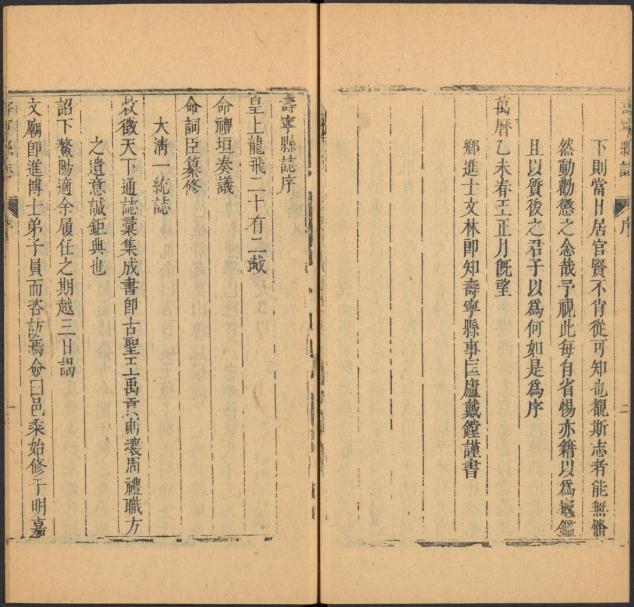 壽寧縣誌
序
二
下則當日居官賢不肖從可知也觀斯志者能無惕
然動勸懲之念哉予視此每自省惕亦籍以為龜鑑
且以質後之君子以為何如是為序
萬曆乙未春王正月旣望
鄉進士文林郎知壽寧縣事三廬戴鏜謹書
壽寧縣誌序
皇上龍飛二十有二載
命禮垣奏議
命詞臣纂修
大淸一統誌
敕徵天下通誌彙集成書卽古聖王禹貢則壤周禮職方
之遺意誠鉅典也
詔下鰲陽適余履任之期越三日謁
文廟卽進博士弟子員而咨訪焉僉曰邑乘始修于明嘉
序
一